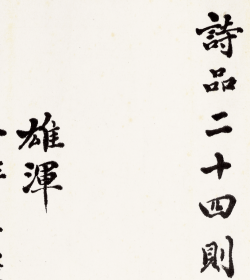 詩品二十四則
雄渾